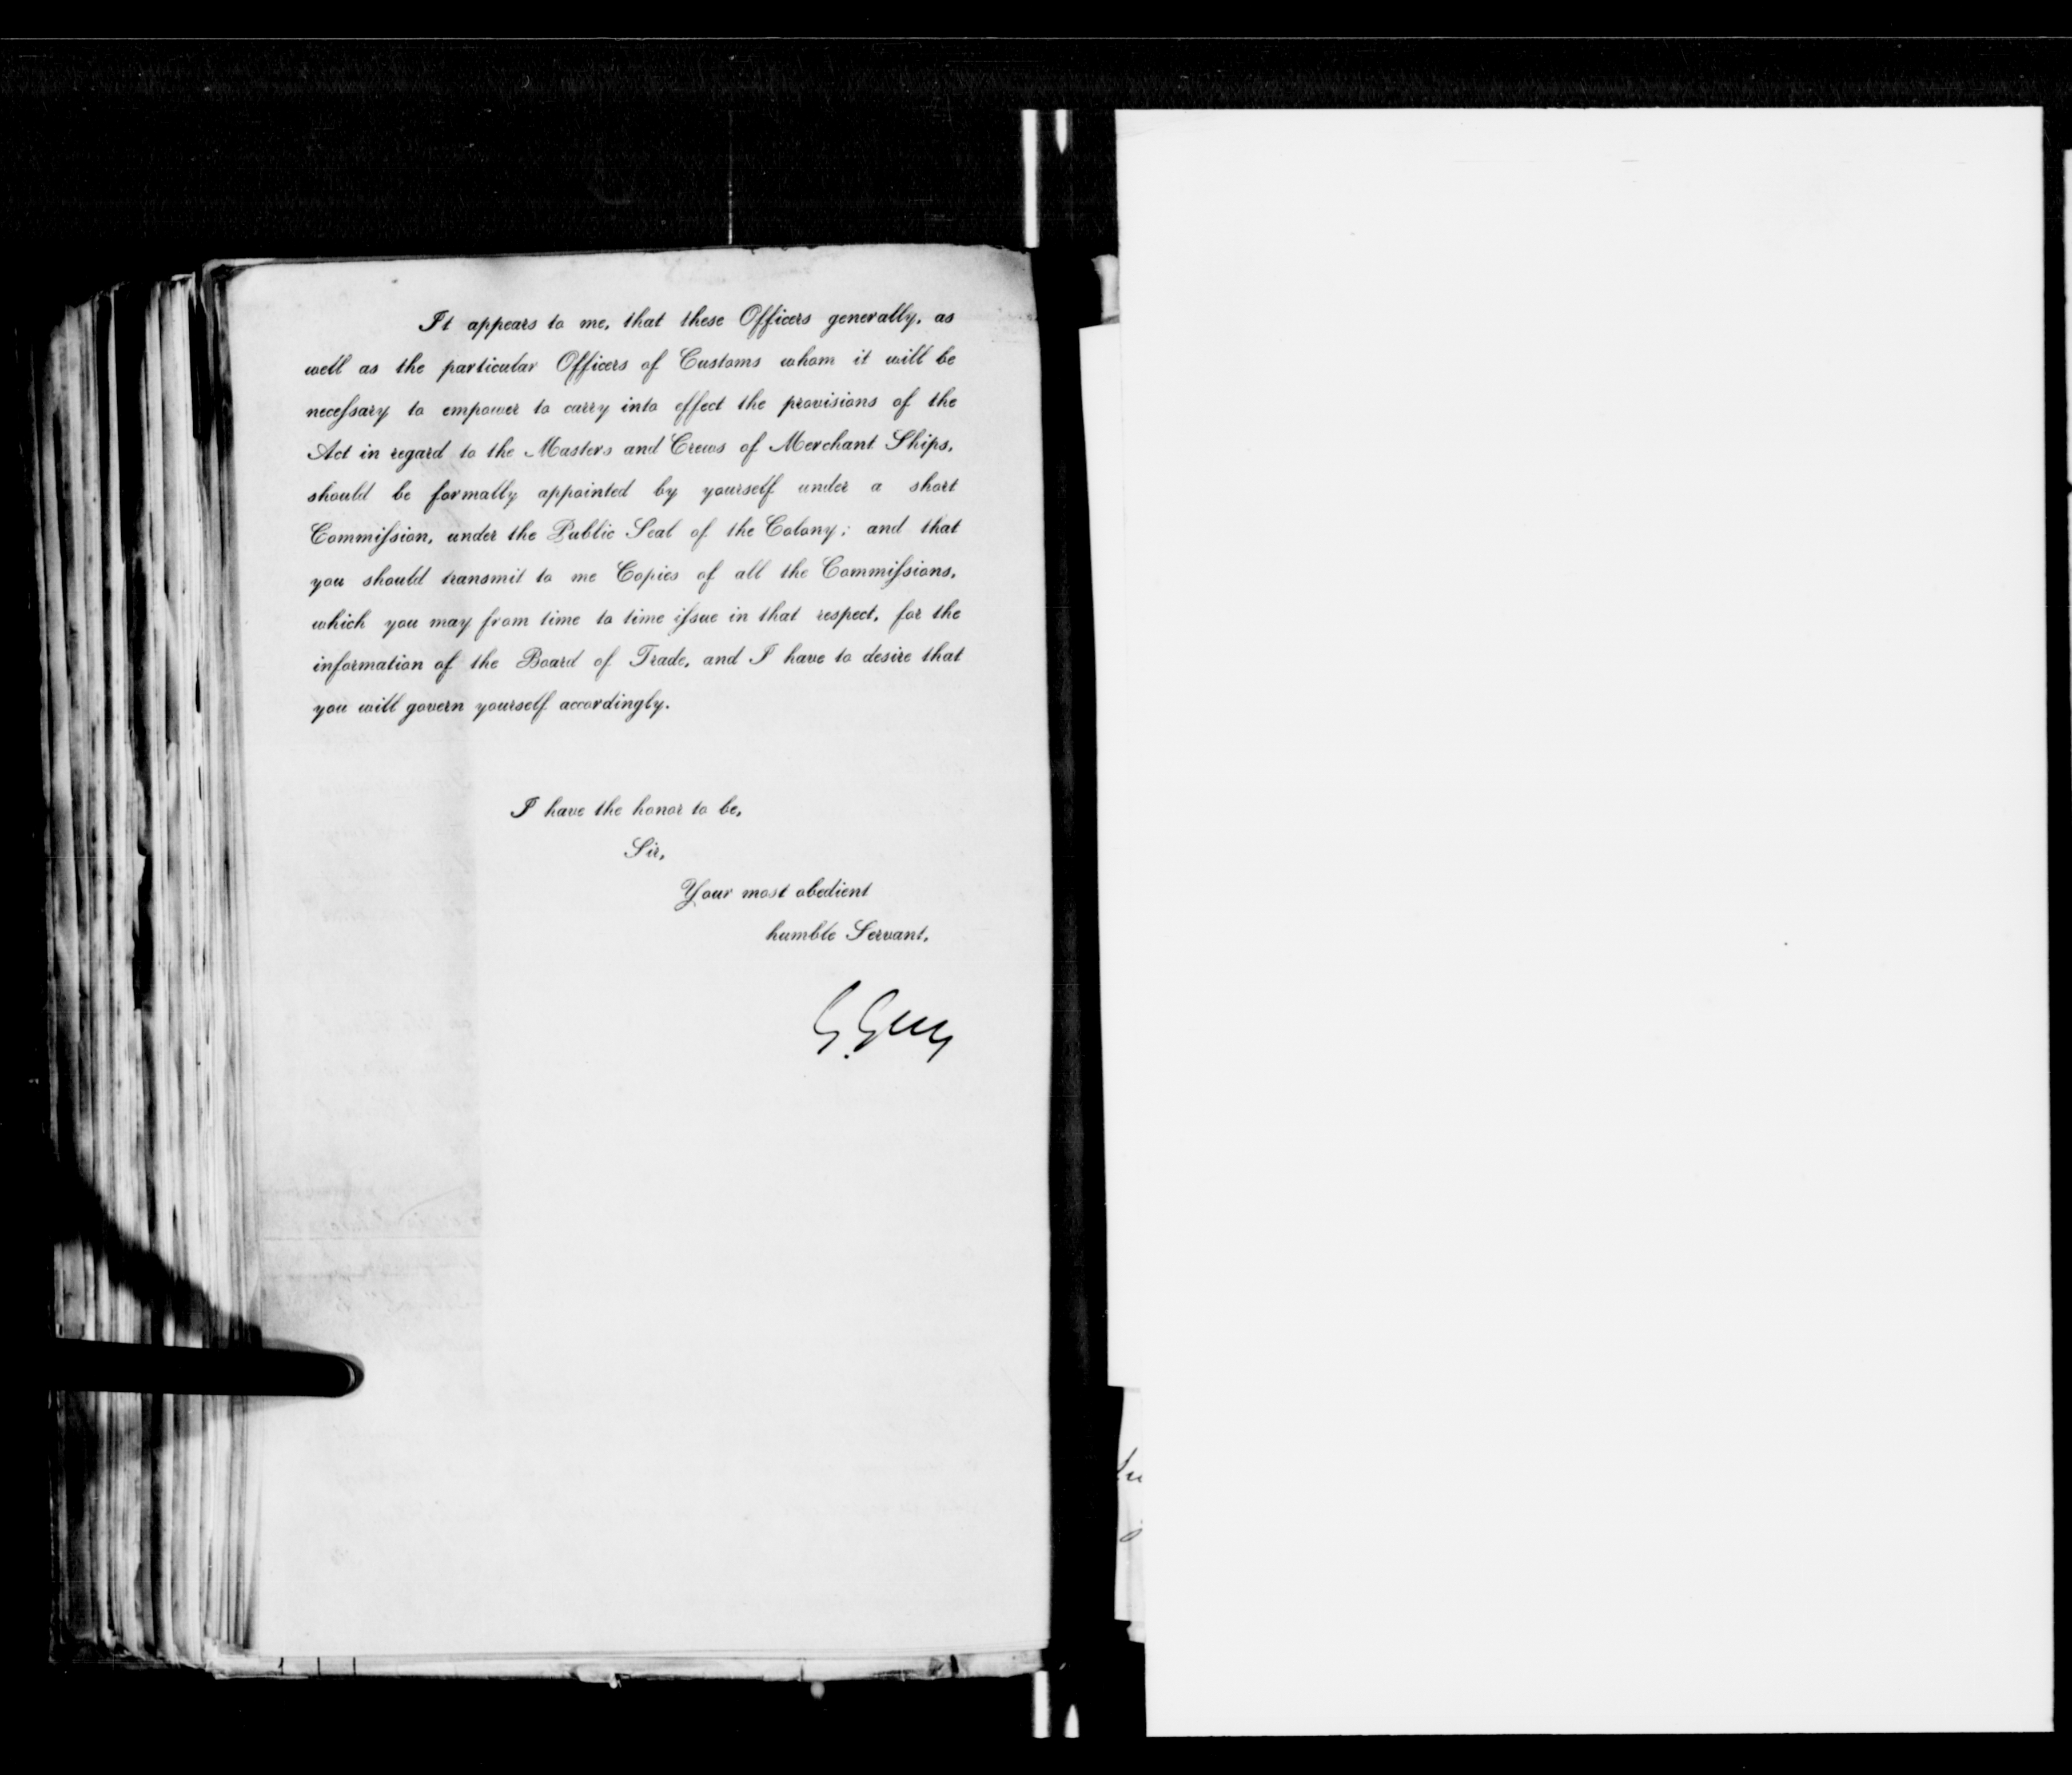 It appears to me, that these Officers generally, as
well as the particular Officers of Customs whom it will be
neceſsary to empower to carry into effect the provisions of the
Act in regard to the Masters and Crews of Merchant Ships,
should be formally appointed by yourself under a short
Commiſsion, under the Public Seal of the Colony; and that
you should transmit to me Copies of all the Commiſsions,
which you may from time to time iſsue in that respect, for the
information of the Board of Trade, and I have to desire that
you will govern yourself accordingly.
I have the honor to be,
Sir,
Your most obedient
humble Servant,
G. Grey